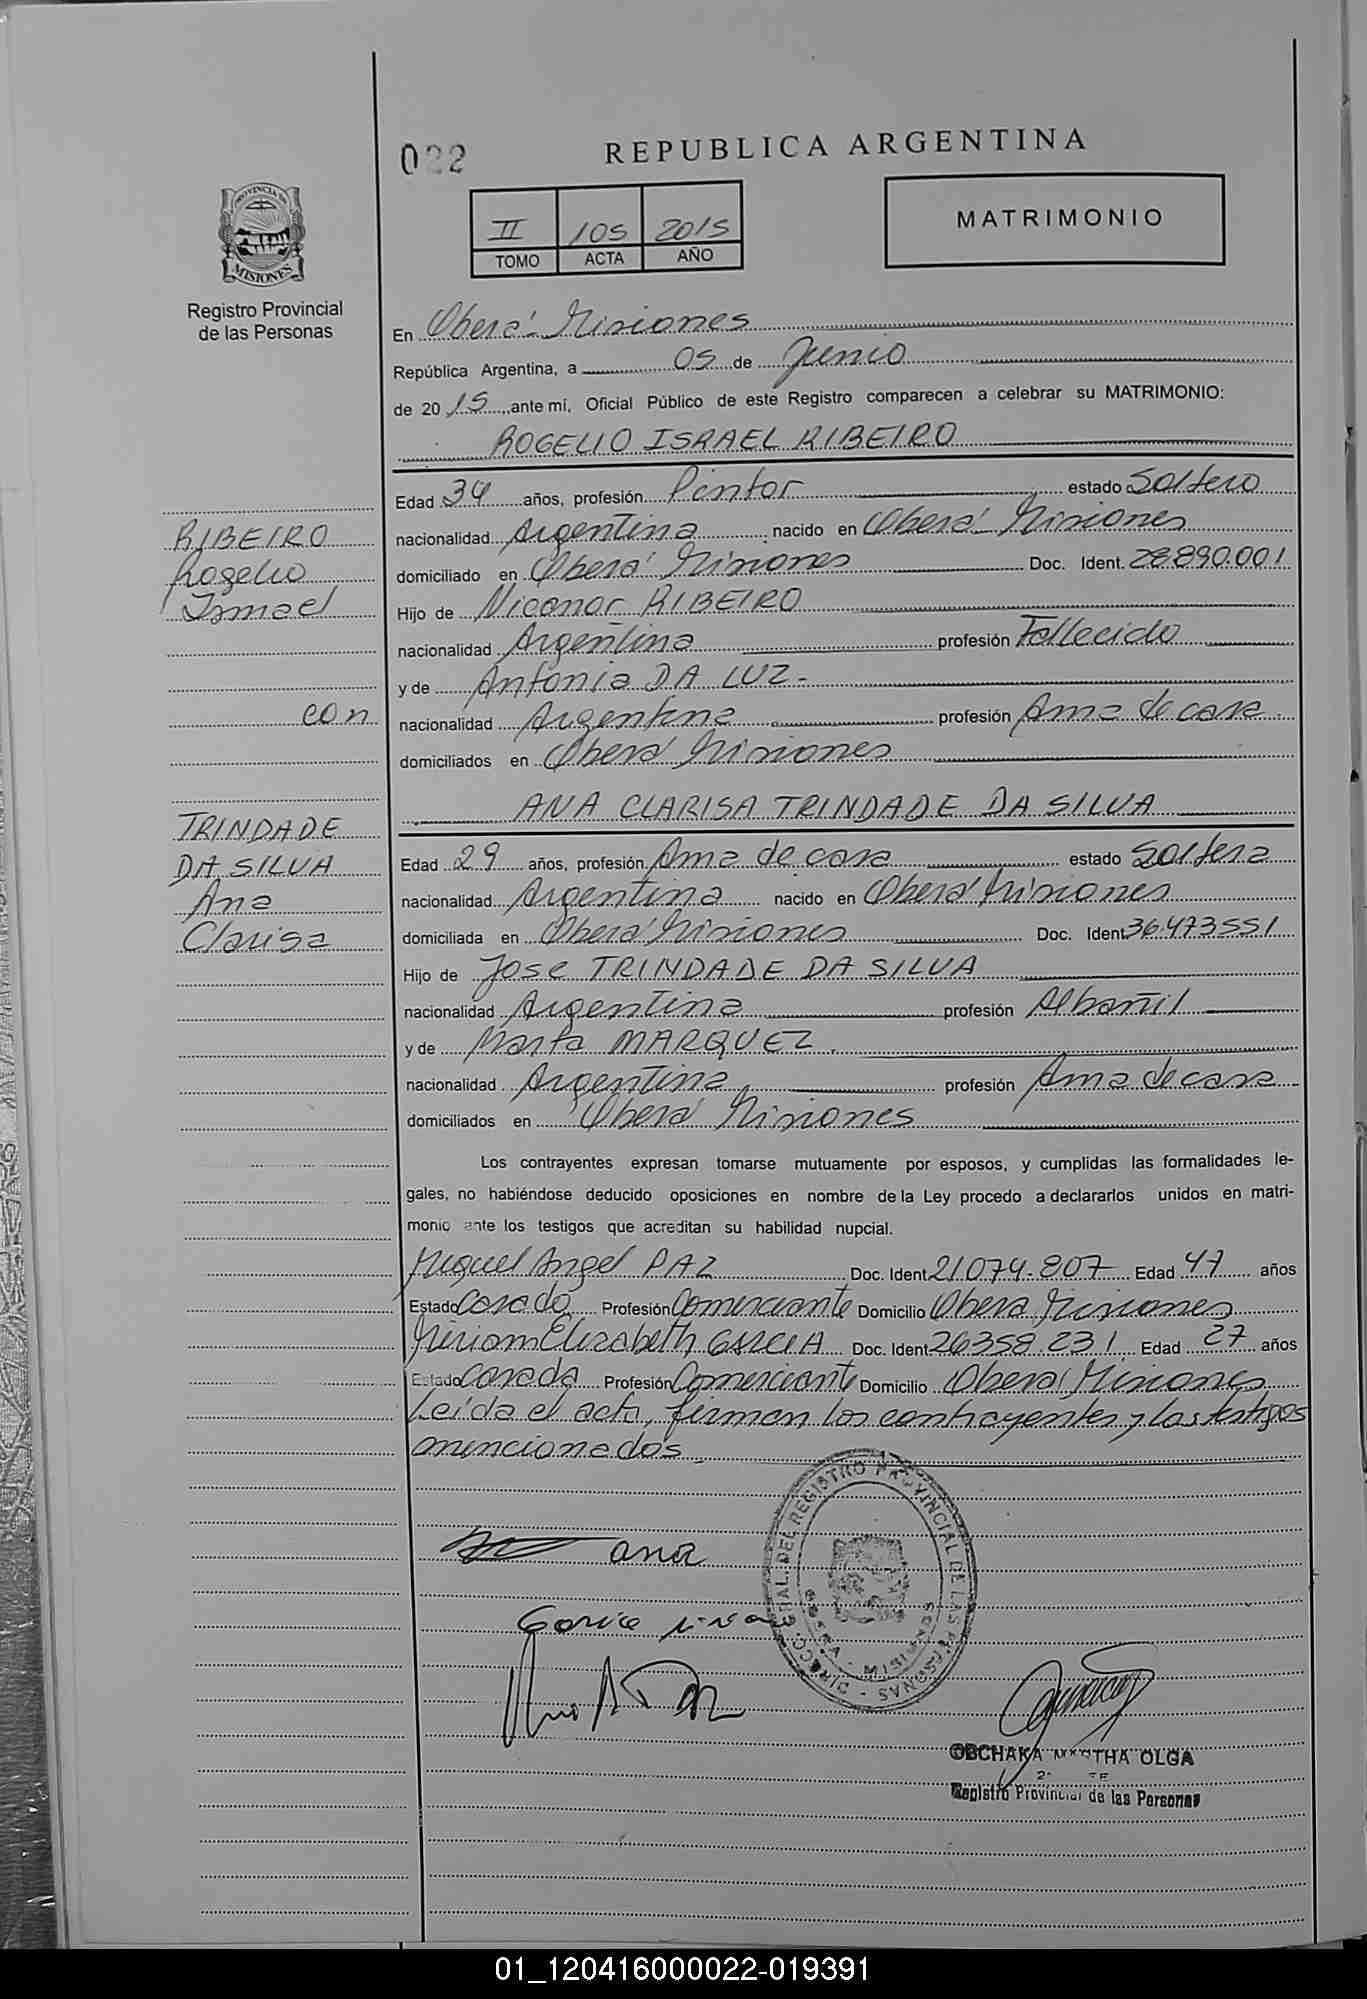 022
REPUBLICA ARGENTINA
II 105 2015
TOMO ACTA AÑO
MATRIMONIO
PROVINCIA DE
MISIONES
Registro Provincial
de las Personas
En Oberá Misiones
República Argentina, a 05 de Junio
de 2015 ante mí, Oficial Público de este Registro comparecen a celebrar su MATRIMONIO:
ROGELIO ISRAEL RIBEIRO
Edad 34 años, profesión Pintor estado Soltero
nacionalidad Argentina nacido en Oberá Misiones
domiciliado en Oberá Misiones Doc. Ident. 28.890.001
Hijo de Nicanor RIBEIRO
nacionalidad Argentina profesión Fallecido
y de Antonia DA LUZ -
nacionalidad Argentina profesión Ama de casa
domiciliados en Oberá Misiones
RIBEIRO
Rogelio
Ismael
con
TRINDADE
DA SILVA
Ana
Clarisa
ANA CLARISA TRINDADE DA SILVA
Edad 29 años, profesión Ama de casa estado Soltera
nacionalidad Argentina nacido en Oberá Misiones
domiciliada en Oberá Misiones Doc. Ident 36.473551
Hijo de Jose TRINDADE DA SILVA
nacionalidad Argentina profesión Albañil
y de Marta MARQUEZ.
nacionalidad Argentina profesión Ama de casa
domiciliados en Oberá Misiones
Los contrayentes expresan tomarse mutuamente por esposos, y cumplidas las formalidades le-
gales, no habiéndose deducido oposiciones en nombre de la Ley procedo a declararlos unidos en matri-
monio ante los testigos que acreditan su habilidad nupcial.
Miguel Angel PAZ Doc. Ident 21074.807 Edad 47 años
Estado Casado Profesión Comerciante Domicilio Oberá Misiones
Miriam Elizabeth GARCIA Doc. Ident 26358.231 Edad 27 años
Estado Casada Profesión Comerciante Domicilio Oberá Misiones
Leída el acta, firman los contrayentes y los testigos
mencionados
ana
DIRECC. GRAL. DEL REGISTRO PROVINCIAL DE LAS PERSONAS
OBERA - MISIONES
OBCHAKA MARTHA OLGA
Registro Provincial de las Personas
01_120416000022-019391